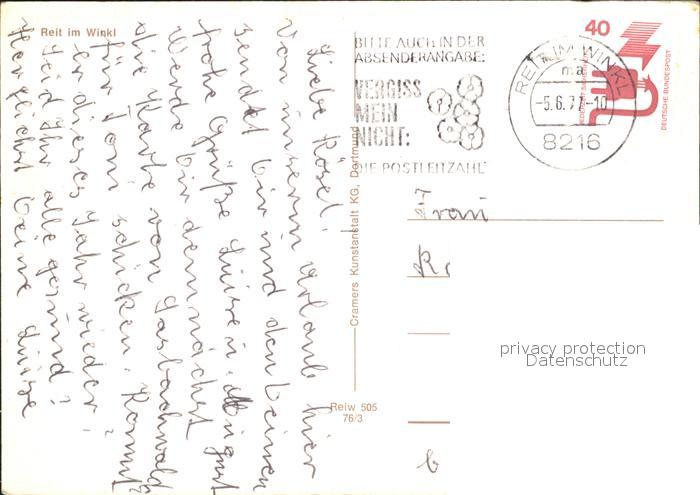 Reit im Winkl
BITTE AUCH IN DER
ABSENDERANGABE:
VERGISS
MEIN
NICHT:
DIE POSTLEITZAHL
REIT IM WINKL
ma
-5.6.77-10
8216
40
JEDERZEIT SICHERHEIT
DEUTSCHE BUNDESPOST
Liebe Rösel,
Von unserem Urlaub hier
sendet Dir und den Deinen
frohe Grüße Luise u. August
Werde Dir demnächst
die Karte von Sasbachwald.
für Toni schicken. Kommt
er dieses Jahr wieder?
Seid Ihr alle gesund?
Herzlichst Deine Luise
Cramers Kunstanstalt KG, Dortmund
Reiw 505
76/3
Frau
privacy protection
Datenschutz
6